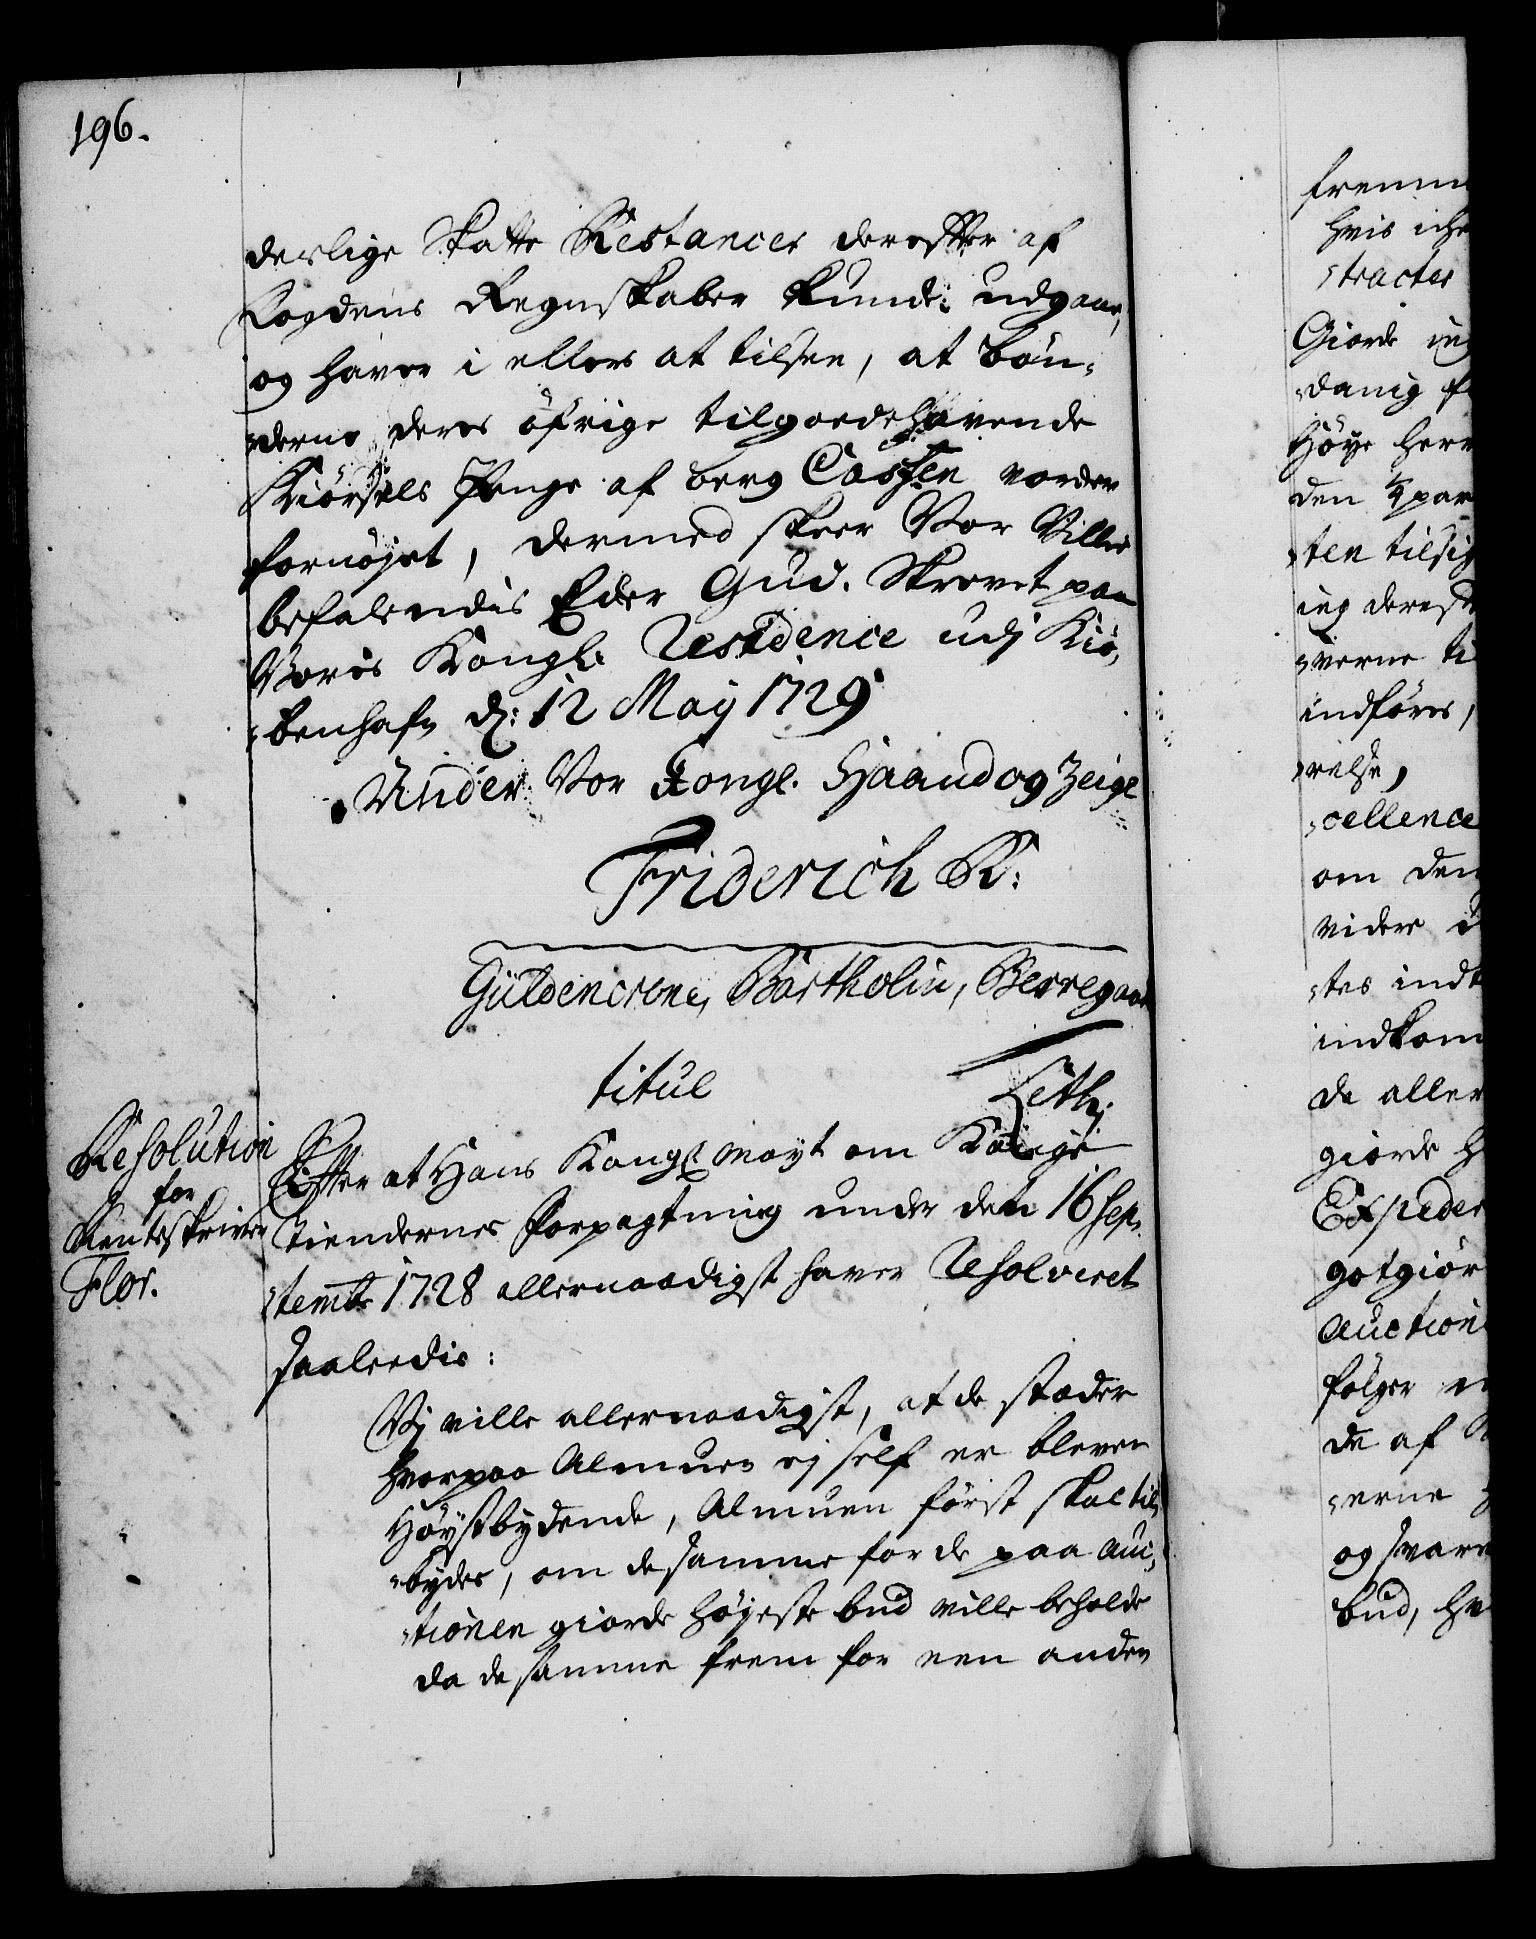 196.
derlige Skatte Restancer derefter af
Fogdens Regnskaber kunde udgaae,
og haver i ellers at tilsee, at bøn-
derne deres øfrige tilgoedehavende
Kiørsels Penge af berg Cassen vorder
fornøyet, dermed skeer Vor Villie
befalendis Eder Gud. Skrevet paa
Voris Kongl. Residence udj Kiø-
benhafn d: 12 Maij 1729
Under Vor Kongl. Haand og Zeigl
Friderich R:
Güldencrone, Bartholin, Berregaard
titul
Leth
Resolution
for
Renteskriver
Flor.
Efter at Hans Kongl Mayt om Konge
tiendernes forpagtning under den 16 Sep-
temb 1728 allernaadigst haver Resolveret
saaleedis:
Vj ville allernaadigst, at de stæder
hvorpaa Almuen ej self er bleven
Høystbydende, Almuen først skal til-
bydes, om de samme for de paa Auc-
tionen giorde høyeste bud ville beholde
da de samme frem for een anden
hvis iche
tracter
Giorde
danig
Høye herr
den
ten
verne
indføres,
relse,
cellence
om den
videre
tes
indkom
de aller
giorde
Expeder
gotgiør
Auction
følger
de af
erne
og svare
bud,